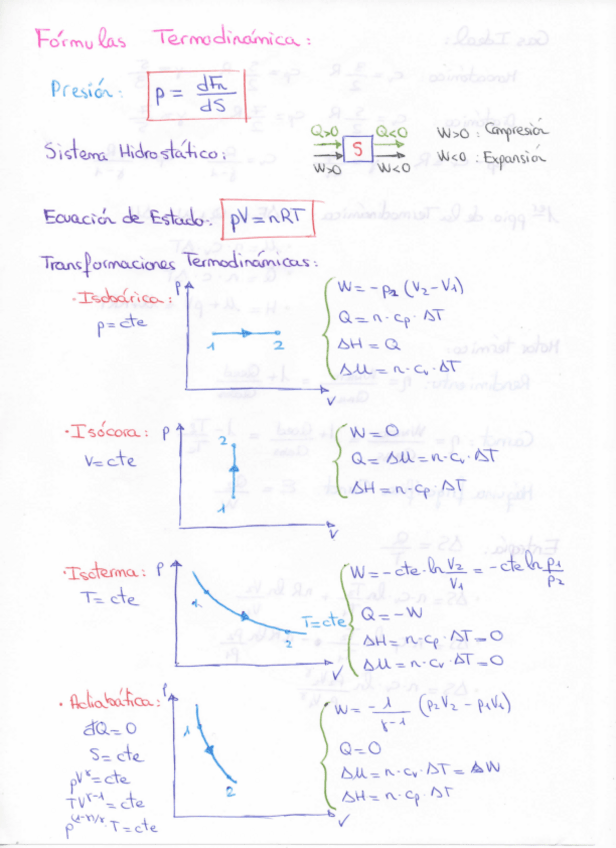 Fórmulas Termodinámica:
Presión: p = dFn/dS
Sistema Hidrostático: Q>0 W>0 S Q<0 W<0 W>0: Compresión
W<0: Expansión
Ecuación de Estado: pV=nRT
Transformaciones Termodinámicas:
· Isobárica:
p=cte
p
1 2
V
W=-p2 (V2-V1)
Q=n·cp·ΔT
ΔH=Q
ΔU=n·cv·ΔT
· Isócora:
V=cte
p
2
1
V
W=0
Q=ΔU=n·cv·ΔT
ΔH=n·cp·ΔT
· Isoterma:
T=cte
p
1
2
T=cte
V
W=-cte·ln V2/V1=-cte ln p1/p2
Q=-W
ΔH=n·cp·ΔT=0
ΔU=n·cv·ΔT=0
· Adiabática:
đQ=0
S=cte
pV^γ=cte
TV^γ-1=cte
p^(1-γ)/γ·T=cte
p
1
2
V
W=-1/γ-1 (p2V2-p1V1)
Q=0
ΔU=n·cv·ΔT=ΔW
ΔH=n·cp·ΔT